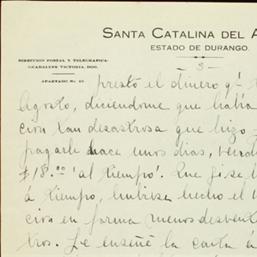 SANTA CATALINA DEL A
ESTADO DE DURANGO.
DIRECCION POSTAL Y TELEGRAFICA:
GUADALUPE VICTORIA, DGO.
APARTADO No.
- 3 -
prestó el dinero q'
Agosto, diciendome que había
cion tan desastrosa que hizo
pagarle hace unos dias,
$18.00 al tiempo. Que si se l
á tiempo, hubiera hecho el
cion en forma menos desvent
tros. Le enseñé la carta á